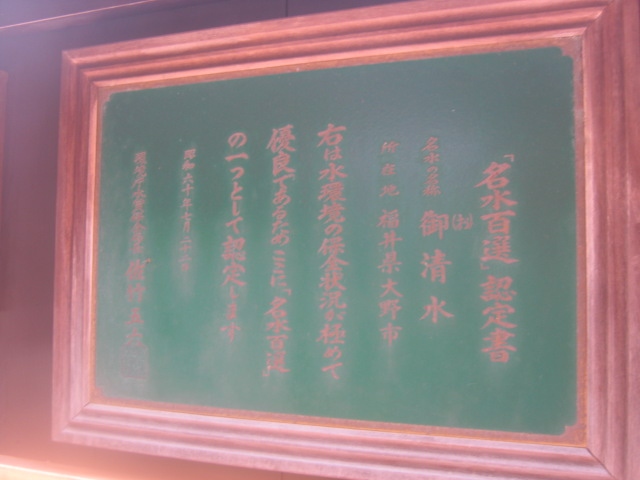 「名水百選」認定書
名水の名称 御(お)清水
所在地 福井県大野市
右は水環境の保全状況が極めて
優良であるためここに「名水百選」
の一つとして認定します
昭和六十年七月
環境庁水質保全局長